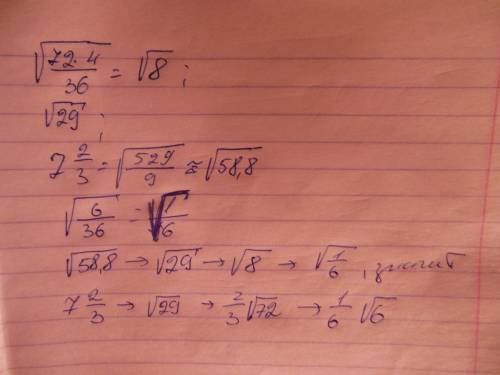 √(72·4/36) = √8 ;
√29 ;
7 2/3 = √(529/9) ≈ √58,8
√(6/36) = √(1/6)
√58,8 → √29 → √8 → √(1/6) , значит
7 2/3 → √29 → 2/3 √72 → 1/6 √6